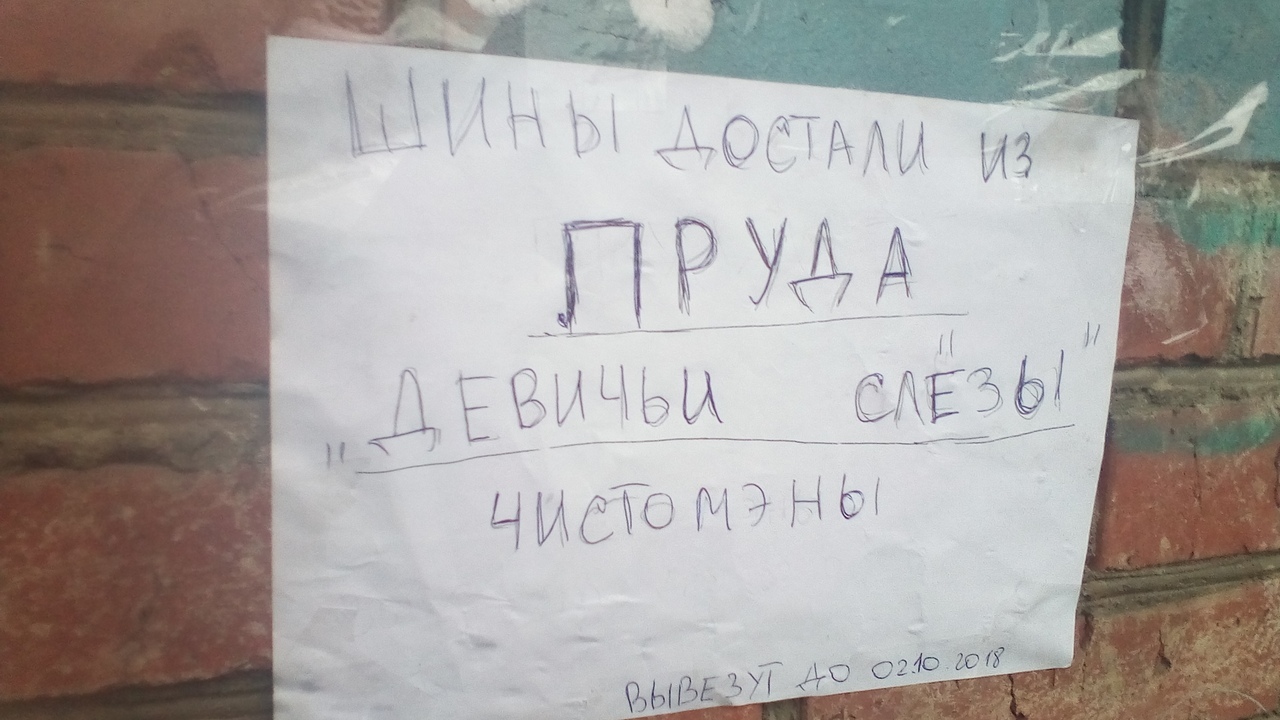 ШИНЫ ДОСТАЛИ ИЗ
ПРУДА
„ДЕВИЧЬИ СЛЁЗЫ"
ЧИСТОМЭНЫ
ВЫВЕЗУТ ДО 02.10.2018